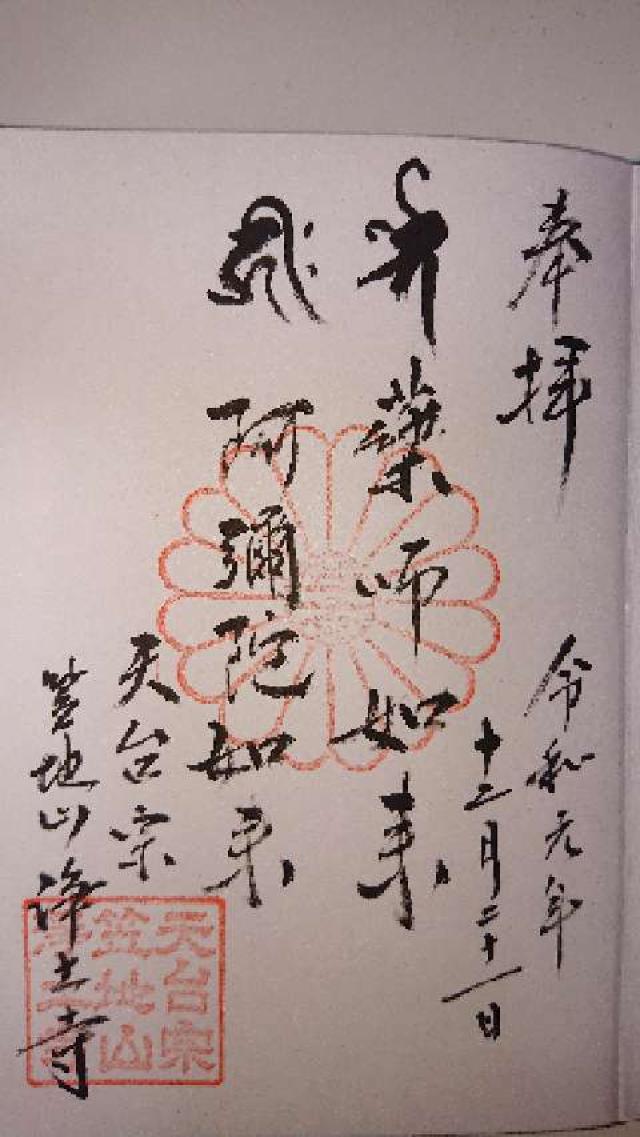 奉拝
令和元年
十二月二十一日
薬師如来
阿彌陀如来
天台宗
笠地山浄土寺
天台宗
笠地山
浄土寺